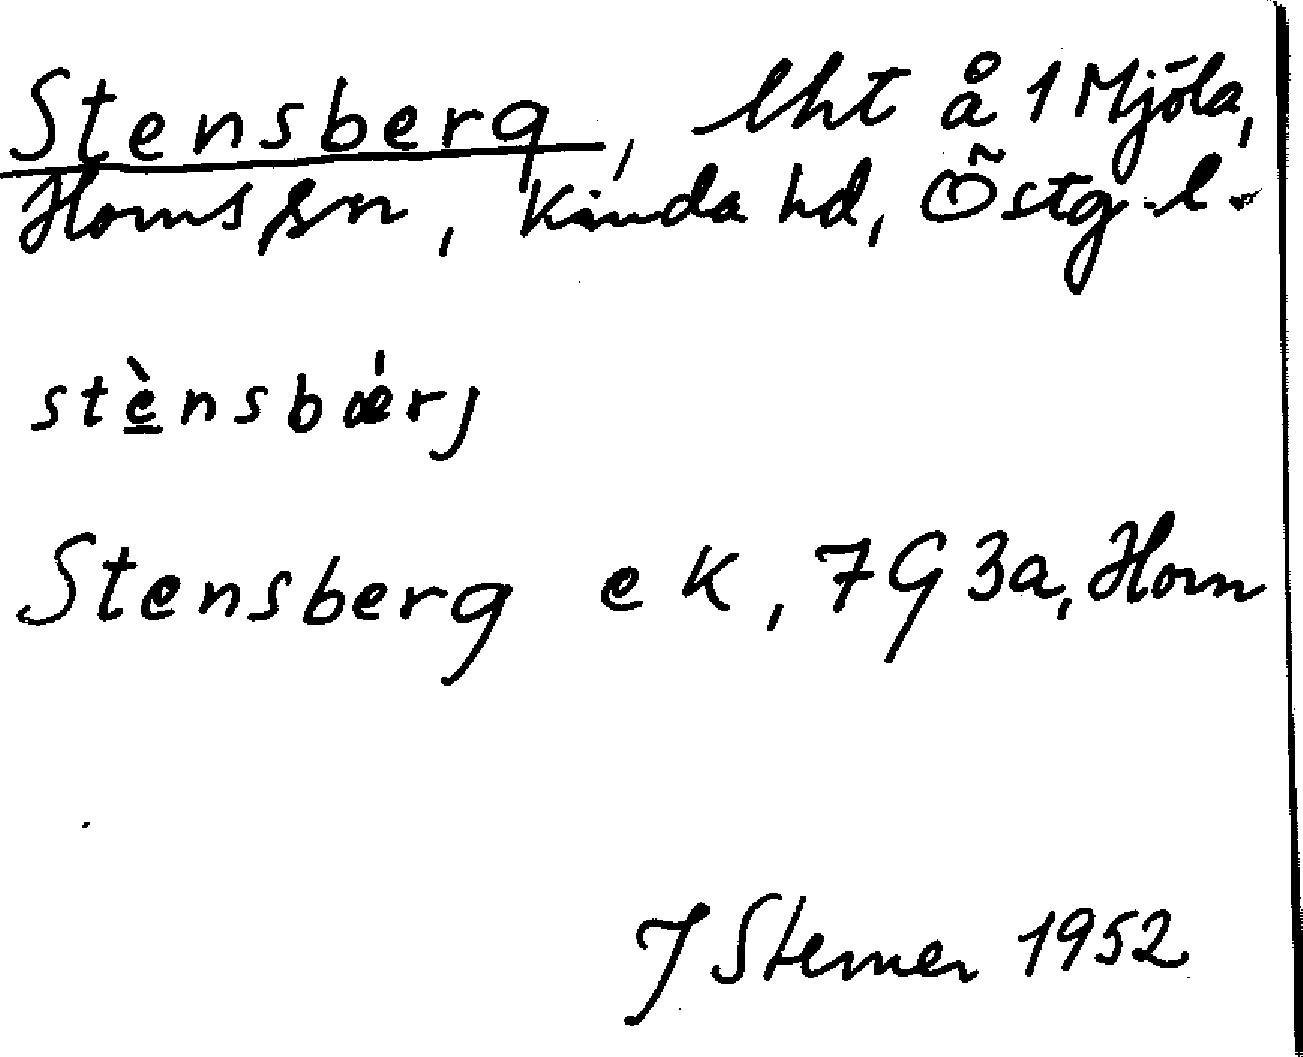 Stensberg, lht å 1 Mjöla,
Horns sn, Kinda hd, Östg. l.
stè̱nsbǽrj
Stensberg ek, 7G3a, Horn
J Sterner 1952